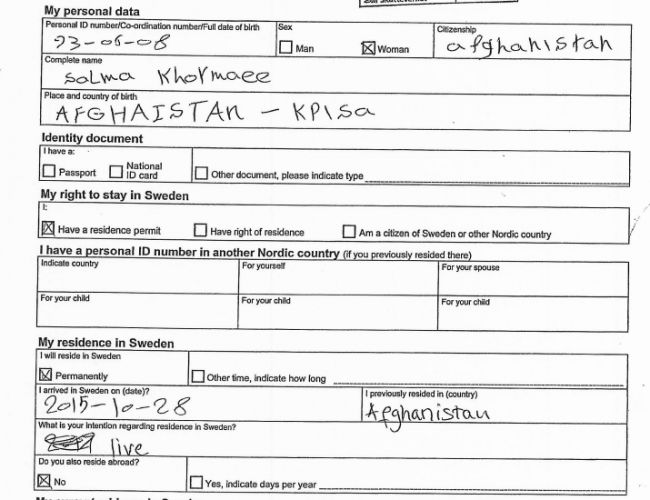 My personal data
Personal ID number/Co-ordination number/Full date of birth Sex Citizenship
93-06-08 Man Woman afghanistan
Complete name
salma Khormaee
Place and country of birth
AFGHAISTAn - KPISa
Identity document
I have a:
Passport National ID card Other document, please indicate type
My right to stay in Sweden
I:
Have a residence permit Have right of residence Am a citizen of Sweden or other Nordic country
I have a personal ID number in another Nordic country (if you previously resided there)
Indicate country For yourself For your spouse
For your child For your child For your child
My residence in Sweden
I will reside in Sweden
Permanently Other time, indicate how long
I arrived in Sweden on (date)? I previously resided in (country)
2015-10-28 Afghanistan
What is your intention regarding residence in Sweden?
live
Do you also reside abroad?
No Yes, indicate days per year